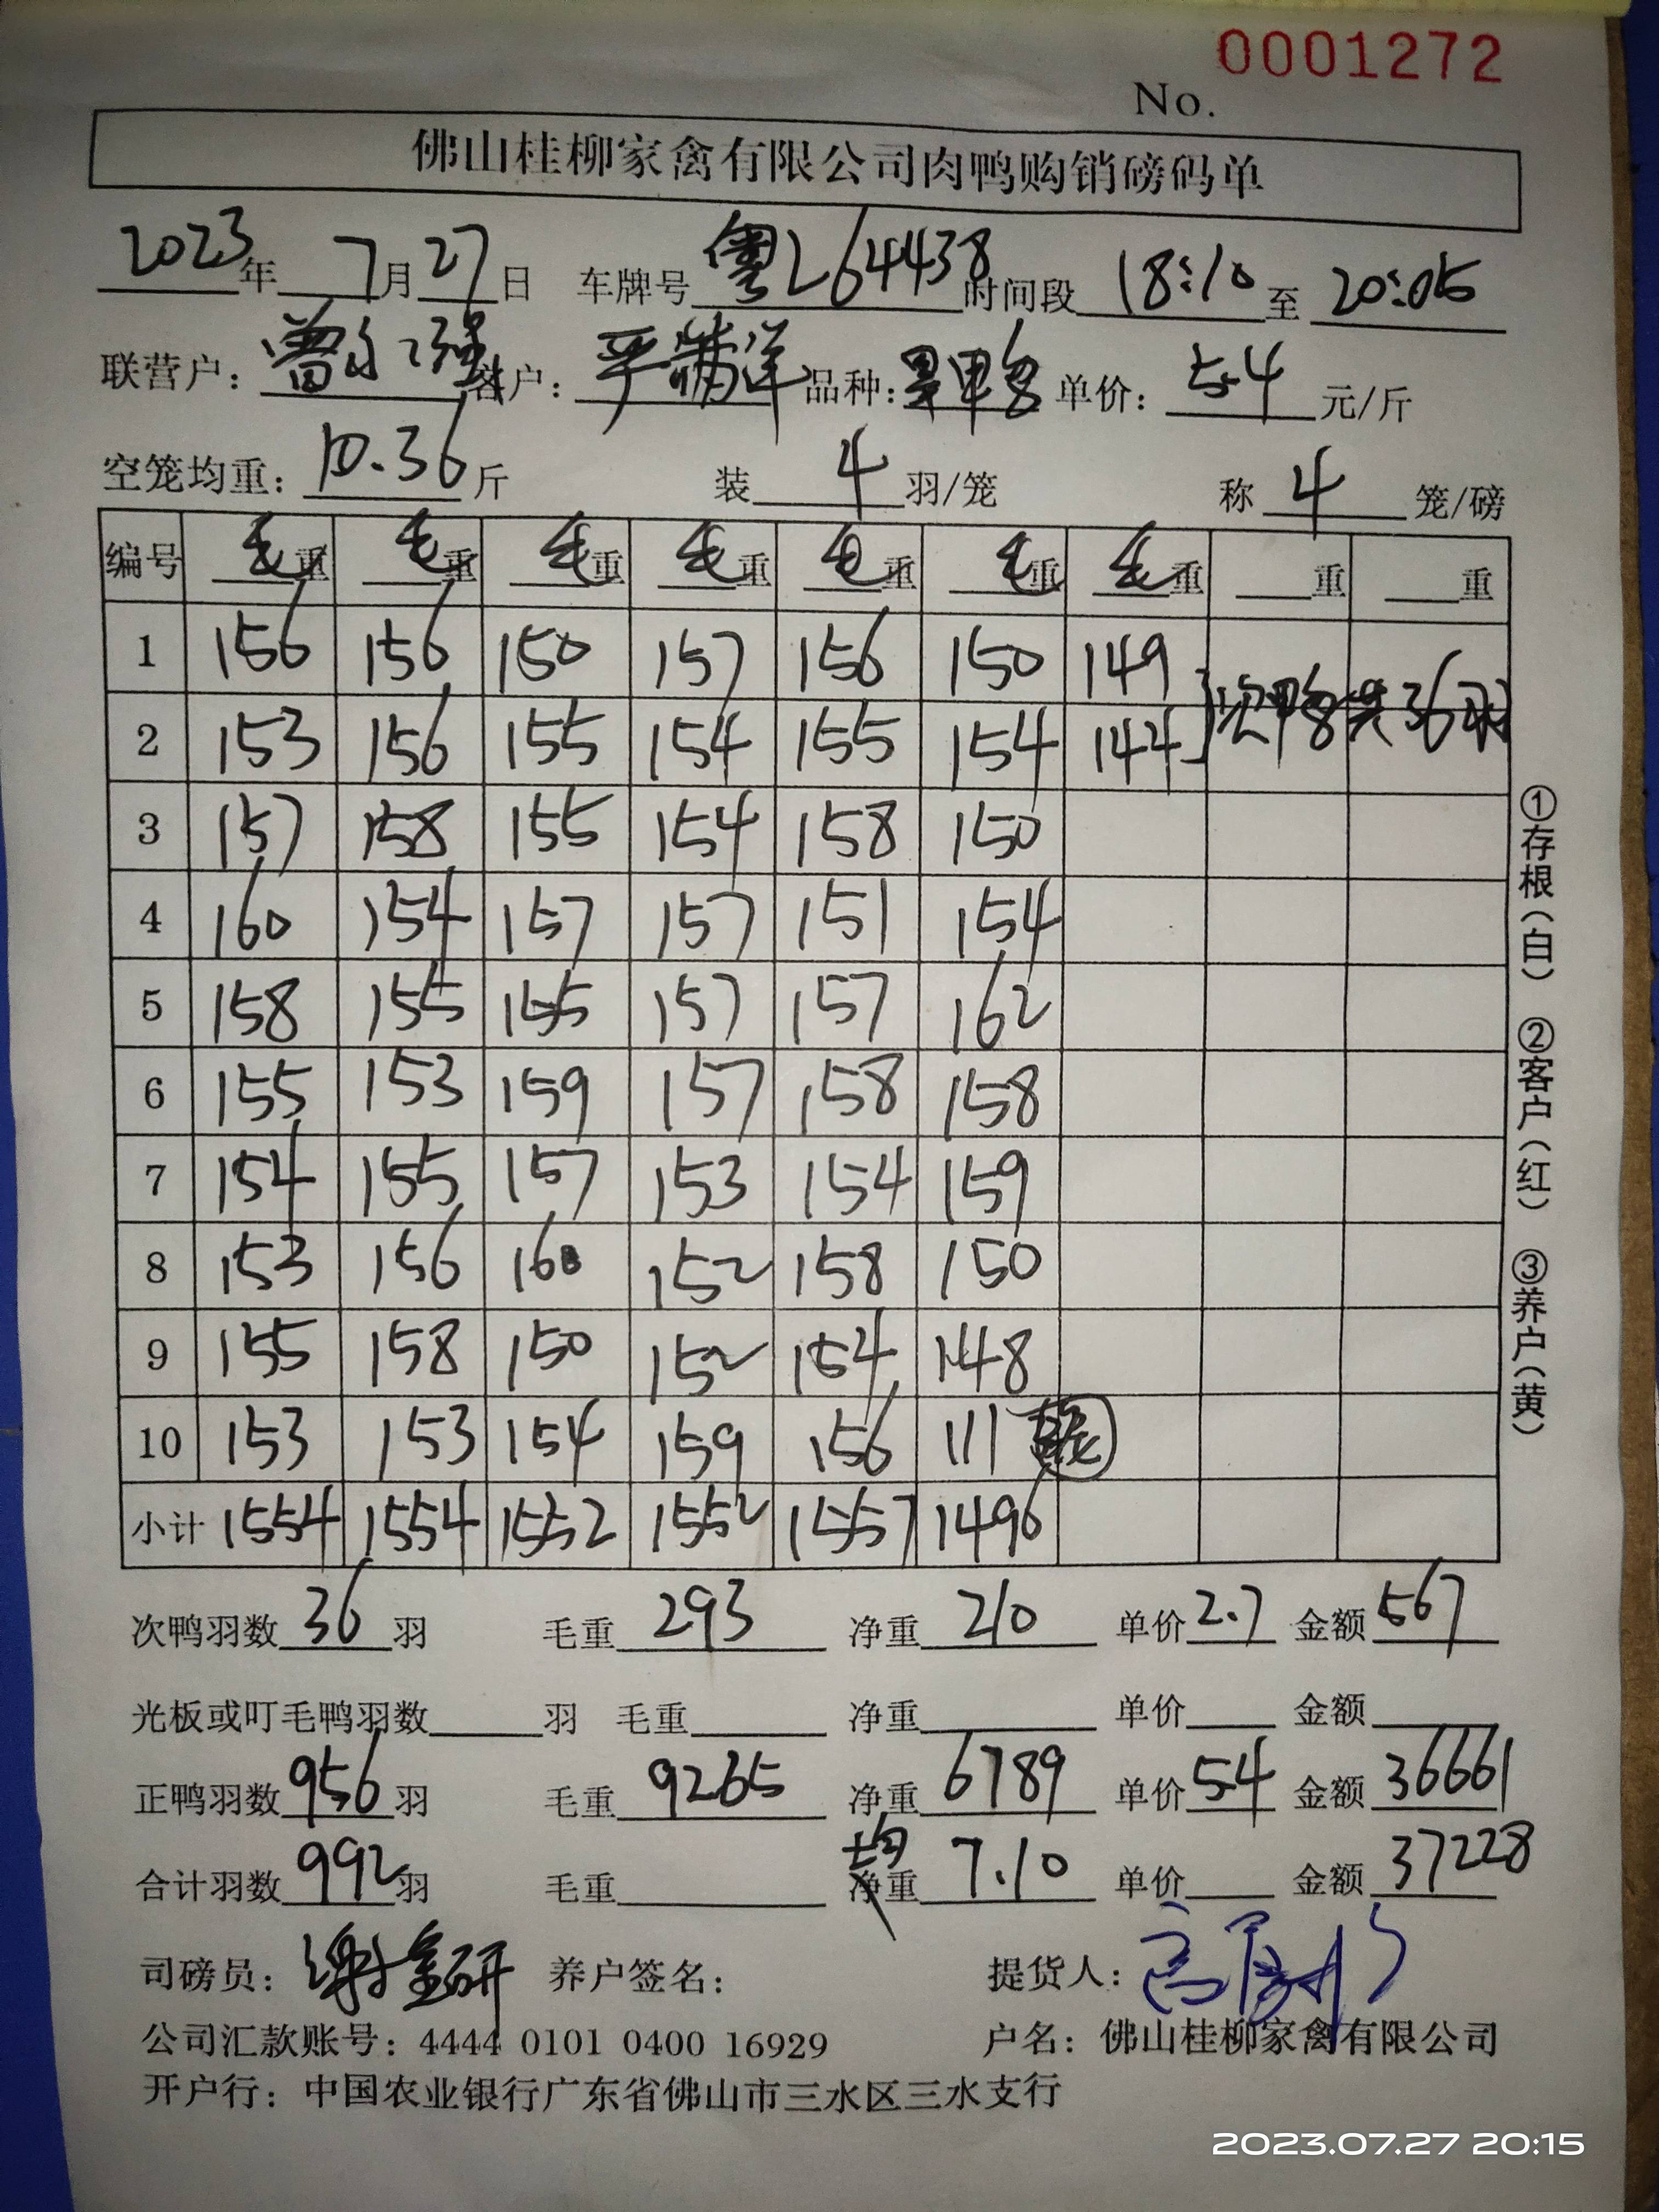 0001272
No.
佛山桂柳家禽有限公司肉鸭购销磅码单
2023年 7月27日 车牌号 粤L64438 时间段 18:10 至 20:05
联营户: 曾 强 客户: 严满洋 品种: 鸭 单价: 5.4 元/斤
空笼均重: 10.36 斤 装 4 羽/笼 称 4 笼/磅
编号 毛重 毛重 毛重 毛重 毛重 毛重 毛重 重 重
1 156 156 150 157 156 150 149
2 153 156 155 154 155 154 144 次鸭共36羽
3 157 158 155 154 158 150
4 160 154 157 157 151 154
5 158 155 155 157 157 162
6 155 153 159 157 158 158
7 154 155 157 153 154 159
8 153 156 160 152 158 150
9 155 158 150 152 154 148
10 153 153 154 159 156 111
小计 1554 1554 1552 1552 1557 1496
次鸭羽数 36 羽 毛重 293 净重 210 单价 2.7 金额 567
光板或叮毛鸭羽数 羽 毛重 净重 单价 金额
正鸭羽数 956 羽 毛重 9265 净重 6789 单价 5.4 金额 36661
合计羽数 992 羽 毛重 均重 7.10 单价 金额 37228
司磅员: 谢金研 养户签名: 提货人:
公司汇款账号: 4444 0101 0400 16929 户名: 佛山桂柳家禽有限公司
开户行: 中国农业银行广东省佛山市三水区三水支行
①存根(白) ②客户(红) ③养户(黄)
2023.07.27 20:15